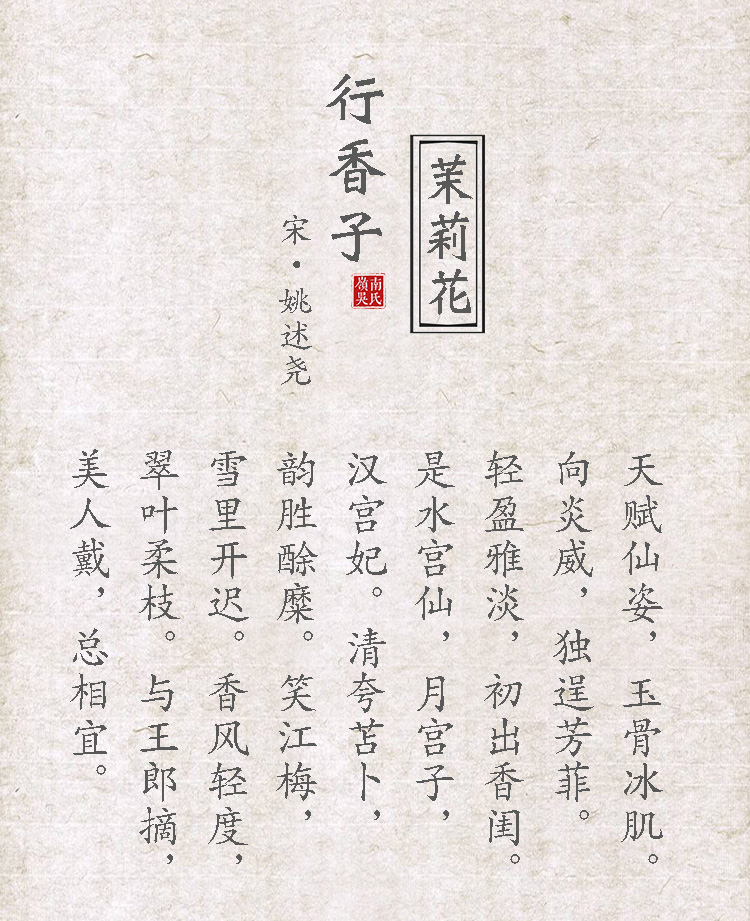 茉莉花
行香子
南氏
嶺吳
宋·姚述尧
天赋仙姿，玉骨冰肌。
向炎威，独逞芳菲。
轻盈雅淡，初出香闺。
是水宫仙，月宫子，
汉宫妃。清夸苫卜，
韵胜酴糜。笑江梅，
雪里开迟。香风轻度，
翠叶柔枝。与王郎摘，
美人戴，总相宜。